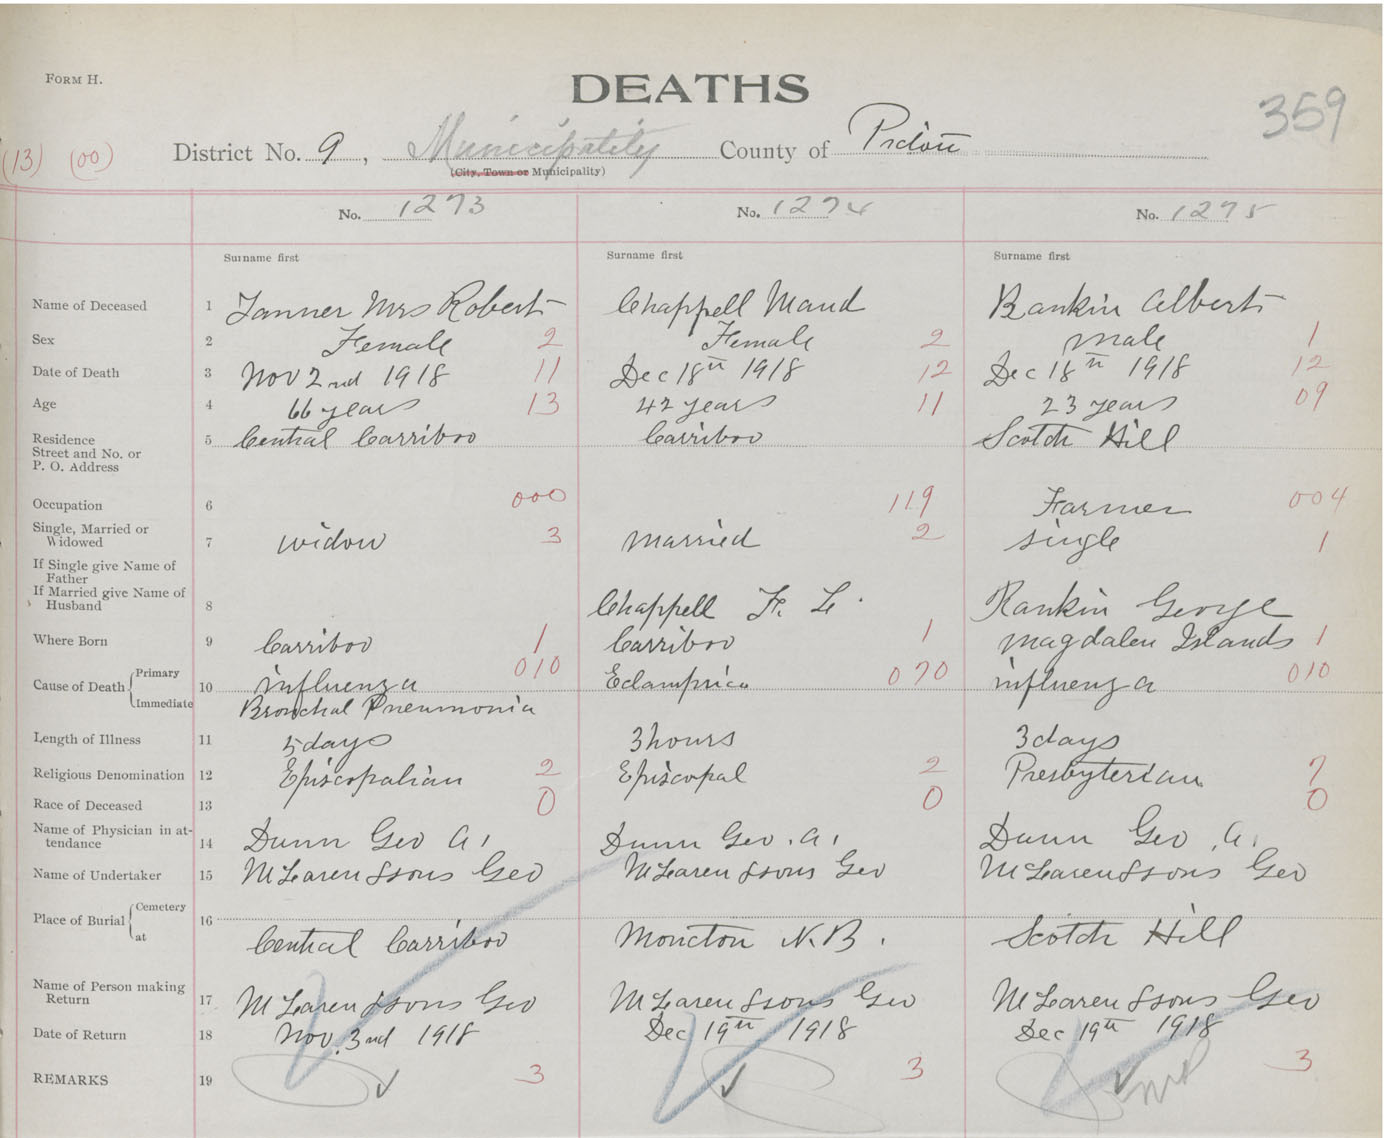 FORM H.
DEATHS
359
(13) (00) District No. 9, Municipality County of Pictou
(City, Town or Municipality)
No. 1273 No. 1274 No. 1275
Surname first Surname first Surname first
Name of Deceased 1 Tanner Mrs Robert Chappell Maud Rankin Albert
Sex 2 Female 2 Female 2 male 1
Date of Death 3 Nov 2nd 1918 11 Dec 18th 1918 12 Dec 18th 1918 12
Age 4 66 years 13 42 years 11 23 years 09
Residence 5 Central Carriboo Carriboo Scotch Hill
Street and No. or
P. O. Address
Occupation 6 000 119 Farmer 004
Single, Married or
Widowed 7 widow 3 married 2 single 1
If Single give Name of
Father
If Married give Name of
Husband 8 Chappell F. L. Rankin George
Where Born 9 Carriboo 1 Carriboo 1 Magdalen Islands 1
Cause of Death Primary 10 influenza 010 Eclamprica 070 influenza 010
Immediate Bronchal Pneumonia
Length of Illness 11 5 days 3 hours 3 days
Religious Denomination 12 Episcopalian 2 Episcopal 2 Presbyterian 7
Race of Deceased 13 0 0 0
Name of Physician in at-
tendance 14 Dunn Geo A. Dunn Geo. A. Dunn Geo. A.
Name of Undertaker 15 McLaren & sons Geo McLaren & sons Geo McLaren & sons Geo
Place of Burial Cemetery 16
at Central Carriboo Moncton N.B. Scotch Hill
Name of Person making
Return 17 McLaren & sons Geo McLaren & sons Geo McLaren & sons Geo
Date of Return 18 Nov. 3nd 1918 Dec 19th 1918 Dec 19th 1918
REMARKS 19 3 3 3